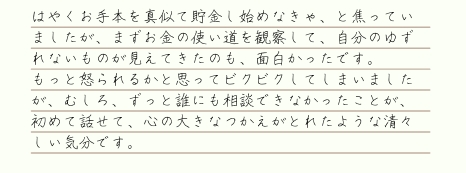 はやくお手本を真似て貯金し始めなきゃ、と焦ってい
ましたが、まずお金の使い道を観察して、自分のゆず
れないものが見えてきたのも、面白かったです。
もっと怒られるかと思ってビクビクしてしまいました
が、むしろ、ずっと誰にも相談できなかったことが、
初めて話せて、心の大きなつかえがとれたような清々
しい気分です。